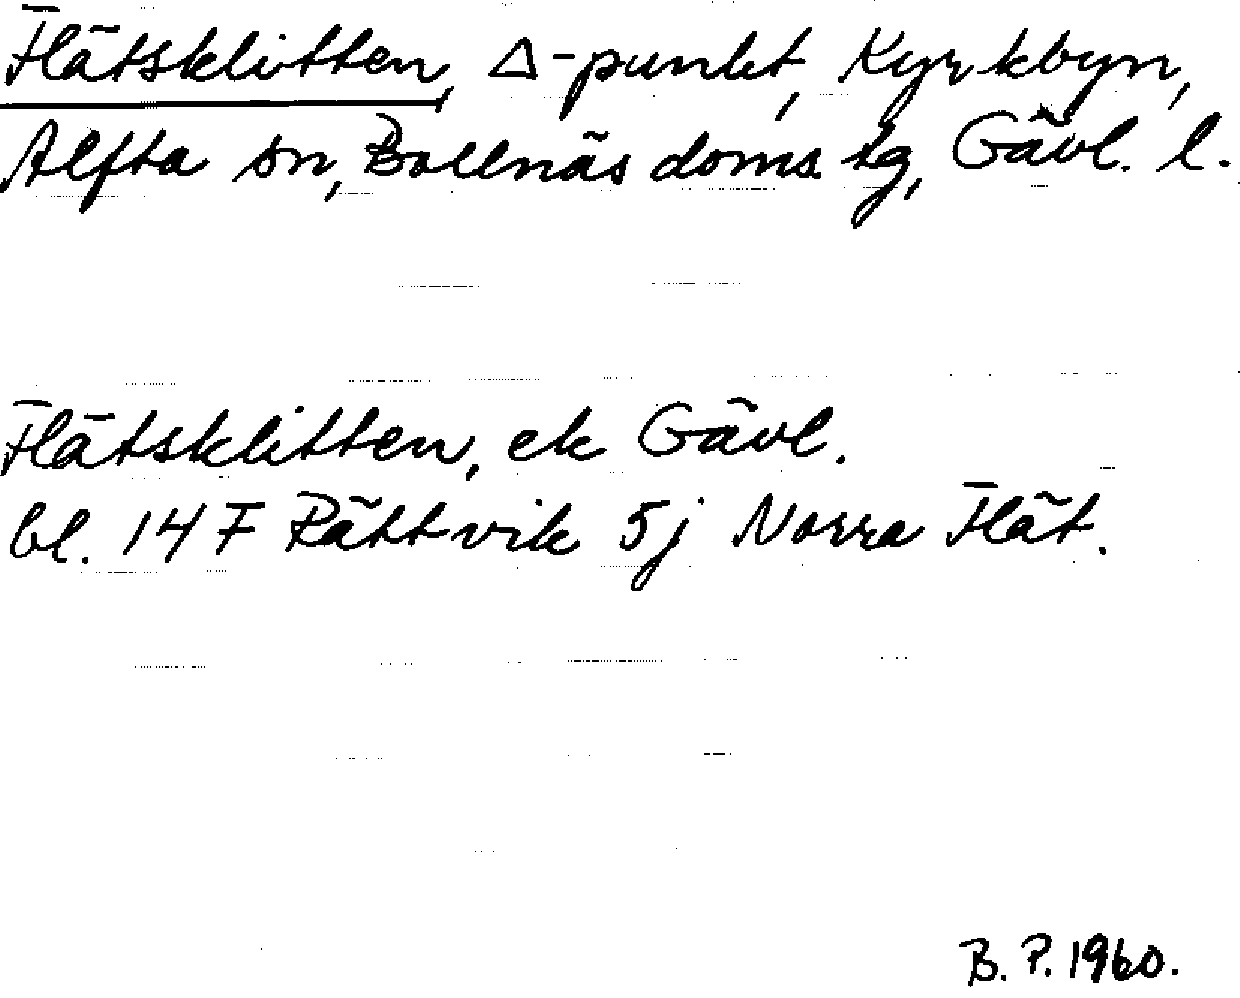 Flätsklitten, Δ-punkt, Kyrkbyn,
Alfta sn, Bollnäs doms. tg, Gävl. l.
Flätsklitten, ek Gävl.
bl. 14 F Rättvik 5j Norra Flät.
B. P. 1960.